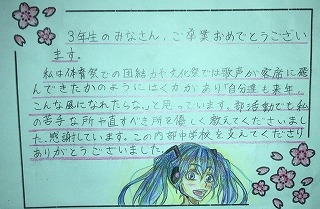 3年生のみなさん、ご卒業おめでとうござい
ます。
私は体育祭での団結力や文化祭では歌声が客席に飛
んできたかのようにはく力があり「自分達も来年、
こんな風になれたらな。」と思っています。部活動でも私
の苦手な所や直すべき所を優しく教えてくださいまし
た。感謝しています。この内部中学校を支えてくださり
ありがとうございました。